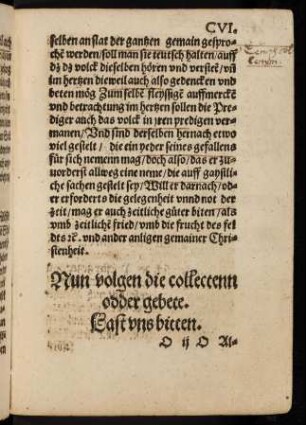 CVI.
selben an stat der gantzen gemain gespro-
chē werden/soll man sie teutsch halten/auff
dz dz volck dieselben hören vnd versteē/vñ
im hertzen dieweil auch also gedencken vnd
beten mög Zum selbē fleyssige auffmerckē
vnd betrachtung im hertzen sollen die Pre-
diger auch das volck in jren predigen ver-
manen/Vnd sind derselben hernach etwo
viel gestelt/die ein yeder seines gefallens
für sich nemenn mag/doch also/das er zu-
uorderst allweg eine neme/die auff gaystli-
che sachen gestelt sey/Will er darnach/od-
er erforderts die gelegenheit vnnd not der
zeit/mag er auch zeitliche güter biten/als
vmb zeitlichē fried/vmb die frucht des fel-
dts ꝛc. vnd ander anligen gemainer Chri-
stenheit.
Nun volgen die collectenn
odder gebete.
Last vns bitten.
O ij O Al-